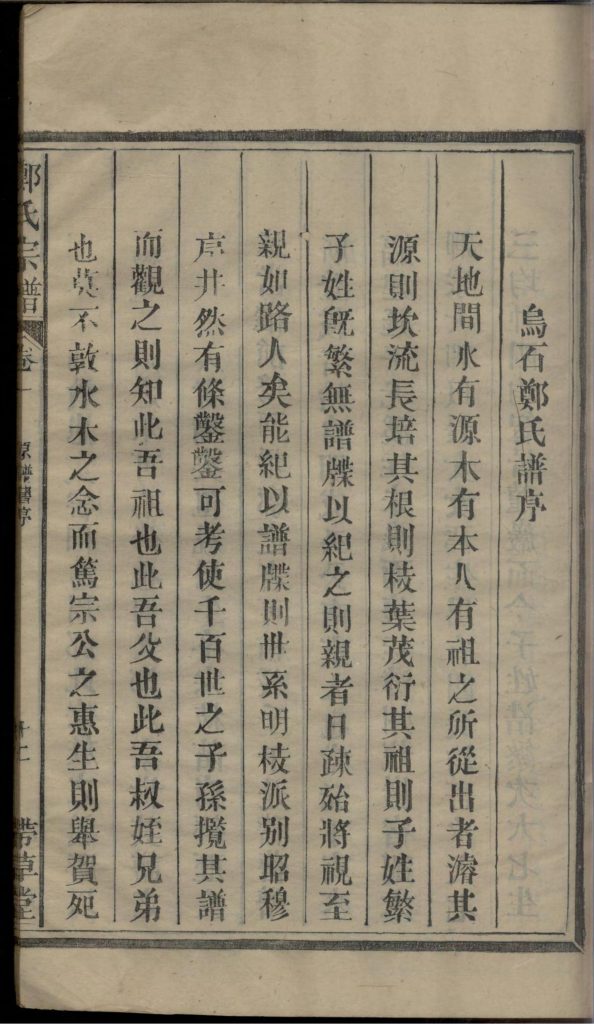 烏石鄭氏譜序
天地間水有源木有本人有祖之所從出者濬其
源則坎流長培其根則枝葉茂衍其祖則子姓繁
子姓旣繁無譜牒以紀之則親者日疎殆將視至
親如路人矣能紀以譜牒則世系明枝派别昭穆
序井然有條鑿鑿可考使千百世之子孫攬其譜
而觀之則知此吾祖也此吾父也此吾叔姪兄弟
也莫不敦水木之念而篤宗公之惠生則舉賀死
鄭氏宗譜
卷一
原譜舊序
十二
帶草堂